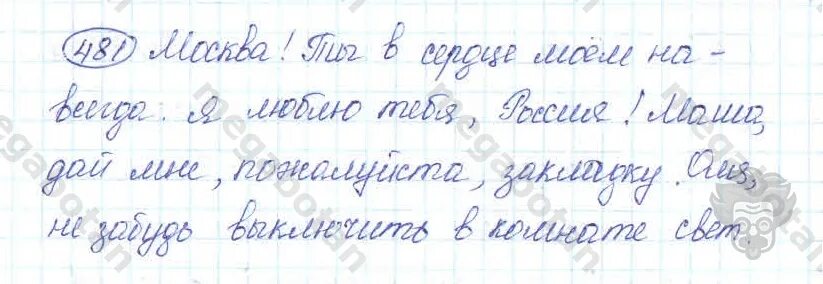 481 Москва! Ты в сердце моём на-
всегда. Я люблю тебя, Россия! Маша,
дай мне, пожалуйста, закладку. Оля,
не забудь выключить в комнате свет.
megabotan